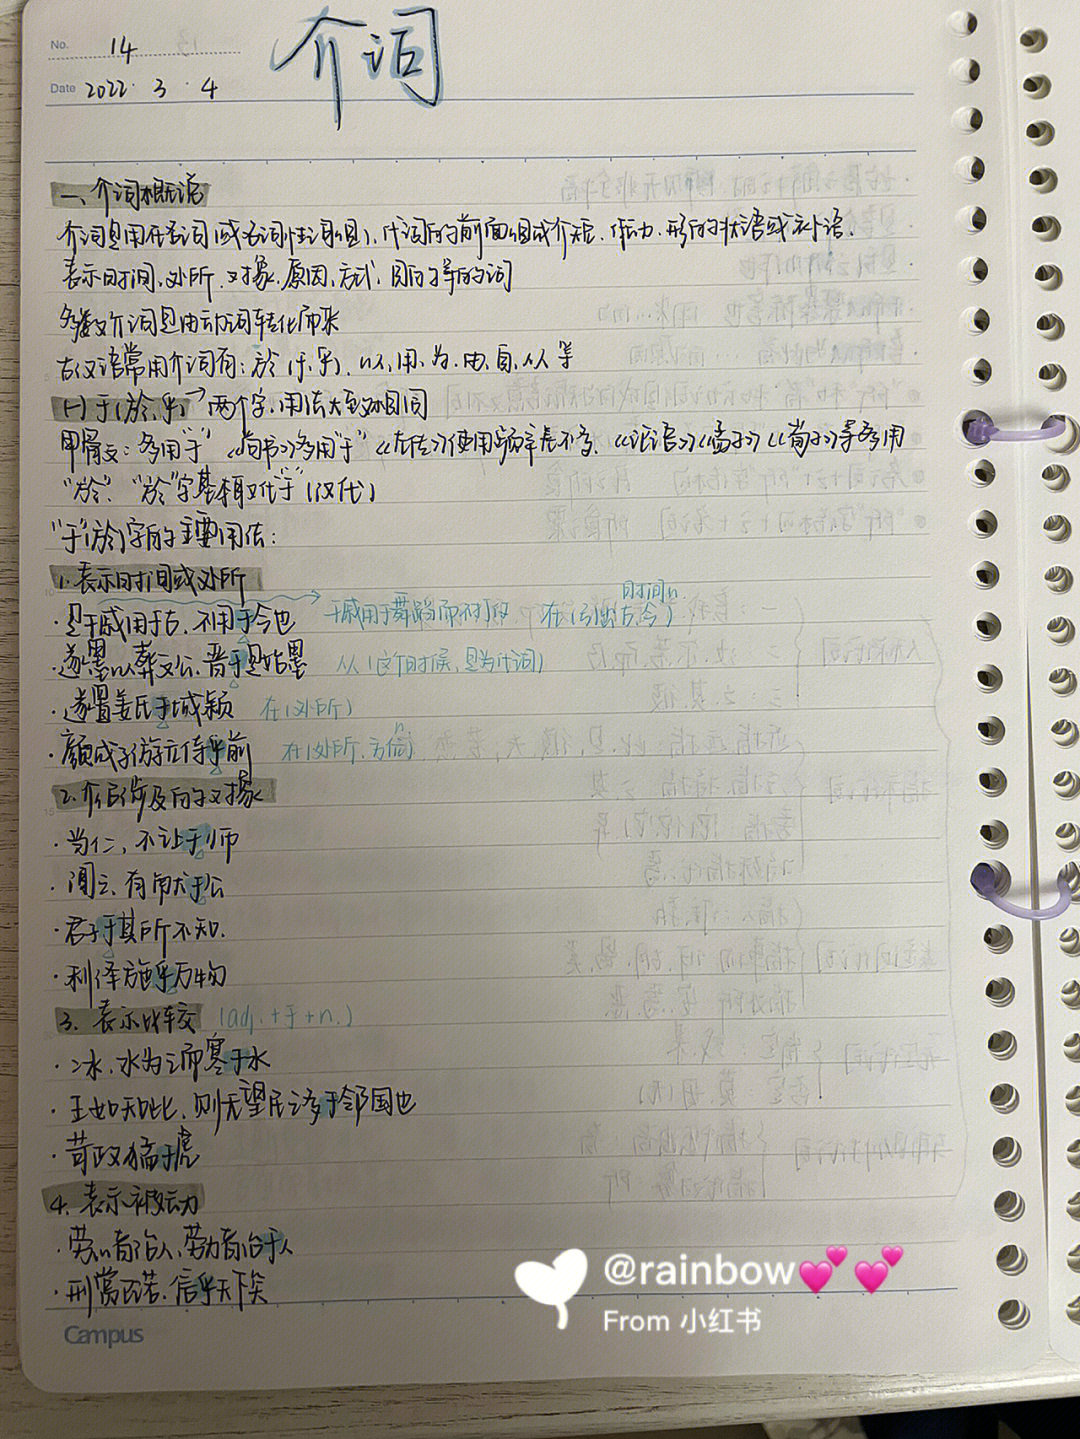 No. 14
介词
Date 2022 · 3 · 4
一、介词概说
介词是用在名词(或名词性词组)、代词的前面组成介短、作动、形的状语或补语、
表示时间、处所、对象、原因、方式、目的等的词
多数介词是由动词转化而来
古汉语常用介词有:於(于、乎)、以、用、为、由、自、从等
(一)于(於、乎)→两个字,用法大致相同
甲骨文:多用"于" 《尚书》多用"于" 《左传》使用频率差不多、《论语》《孟子》《荀子》等多用
"於"、"於"字基本取代"于"(汉代)
"于"(於)字的主要用法:
1. 表示时间或处所
时间n.
·是干戚用于古、不用于今也 干戚用于舞蹈而不打仗 在(引出古、今)
·遂墨以葬文公、晋于是始墨 从(这个时候,是为代词)
·遂置姜氏于城颍 在(处所)
·颜成子游立侍乎前 在(处所、方位n)
2. 介绍涉及的对象
·当仁、不让于师
·闻之、有用大于公
·君子于其所不知、
·利泽施乎万物
3. 表示比较 (adj.+于+n.)
·冰、水为之而寒于水
·王如知此、则无望民之多于邻国也
·苛政猛于虎
4. 表示被动
·劳心者治人、劳力者治于人
·刑赏已诺、信乎天下矣
Campus
@rainbow💕💕
From 小红书